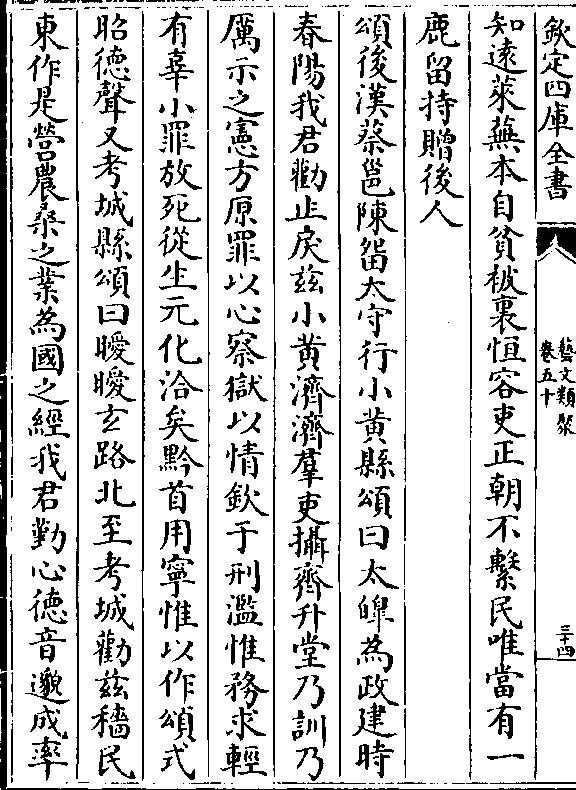 欽定四庫全書
藝文類聚
卷五十
三十四
知遠萊蕪本自貧被裏恒容吏正朝不繫民唯當有一
鹿留持贈後人
頌後漢蔡邕陳留太守行小黄縣頌曰太皥為政建時
春陽我君勸止戾兹小黄濟濟羣吏攝齊升堂乃訓乃
厲示之憲方原罪以心察獄以情欽于刑濫惟務求輕
有辜小罪放死從生元化洽矣黔首用寧惟以作頌式
昭德聲又考城縣頌曰曖曖玄路北至考城勸兹穡民
東作是營農桑之業為國之經我君勤心德音邈成率